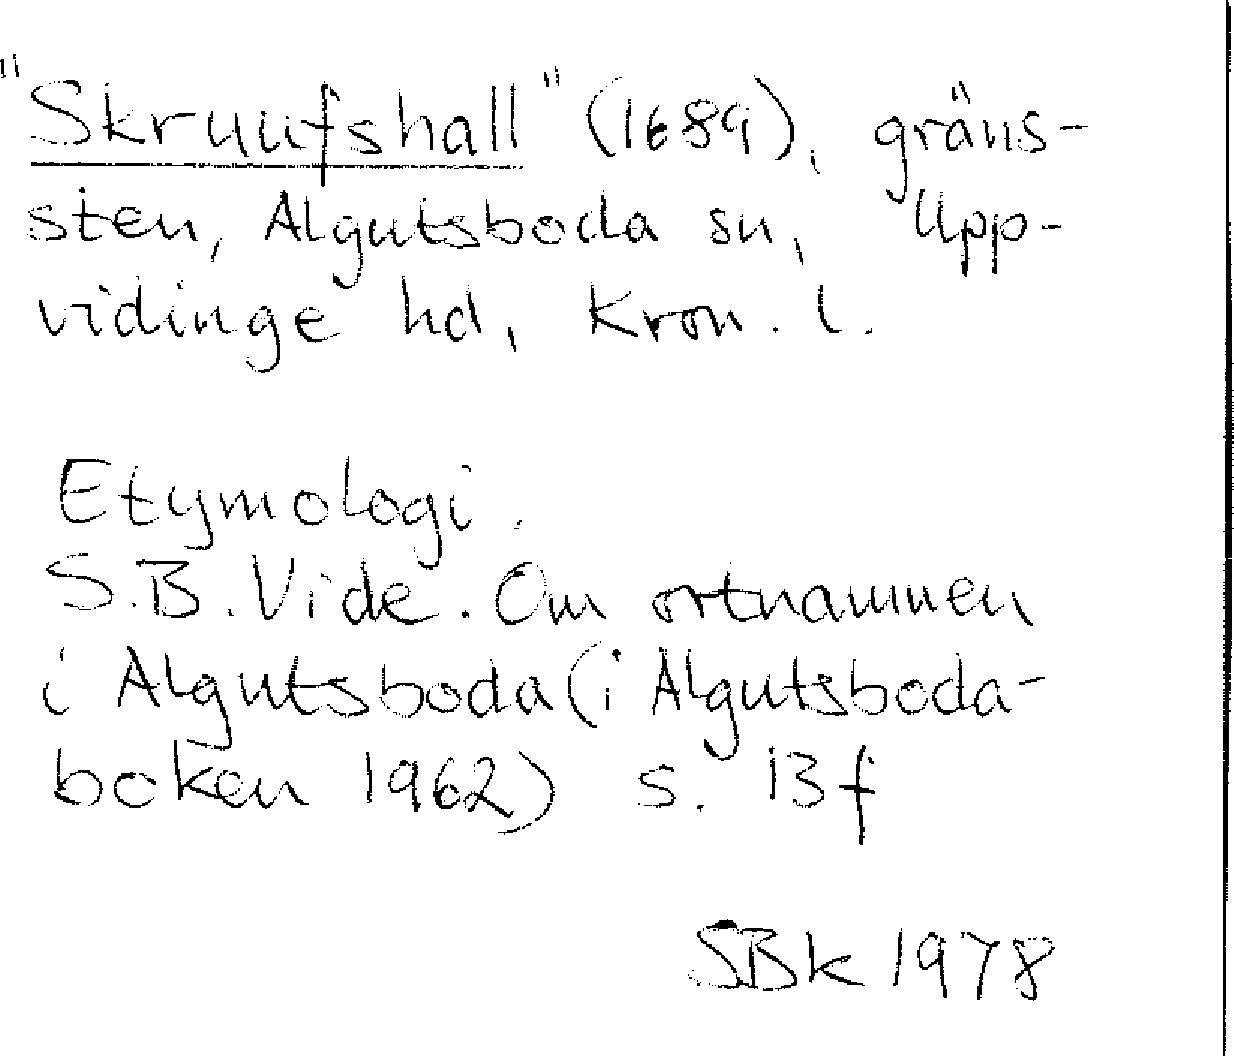 "Skruufshall" (1689), gräns-
sten, Algutsboda sn, Upp-
vidinge hd, Kron. l.
Etymologi.
S.B. Vide. Om ortnamnen
i Algutsboda (i Algutsboda-
boken 1962) s. 13f
SBk 1978